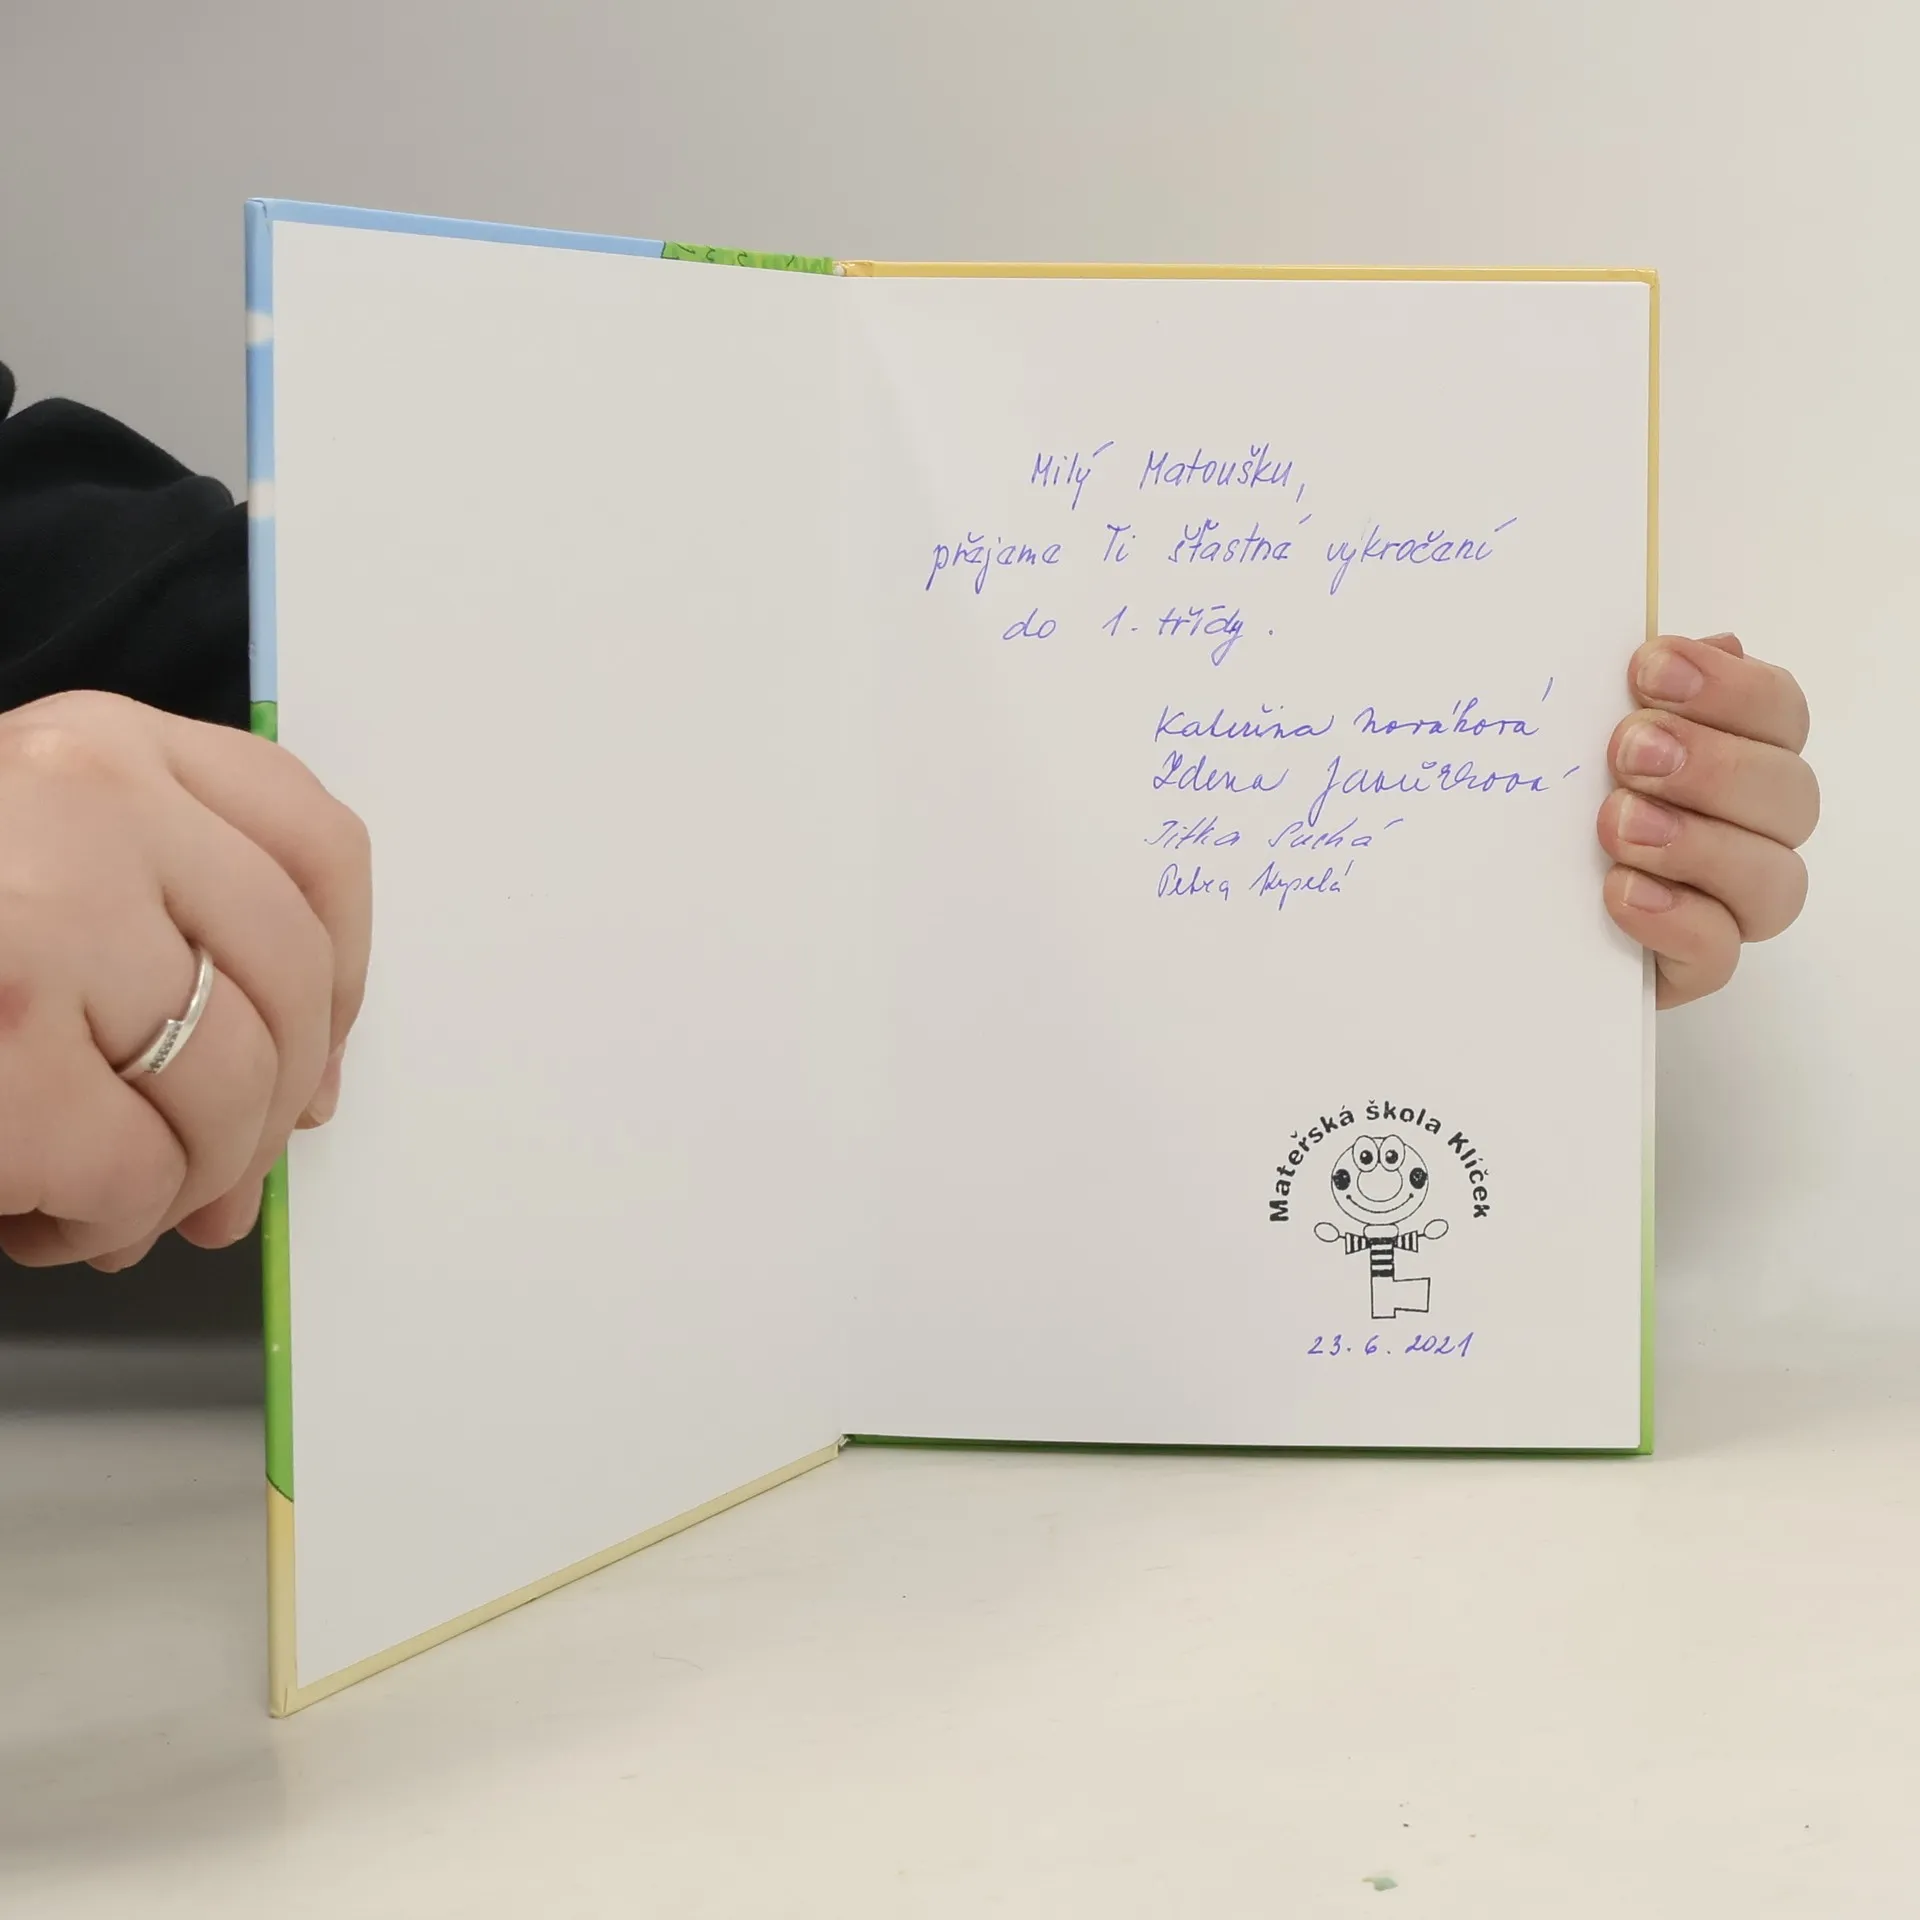 Milý Matoušku,
přejeme Ti šťastné vykročení
do 1. třídy.
Kateřina Nováková
Zdena Janů
Jitka Suchá
Petra Kypelá
Mateřská škola Klíček
23. 6. 2021